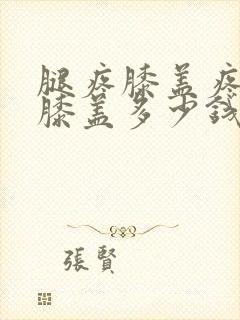 腿疼膝盖疼
膝盖多少钱
張賢